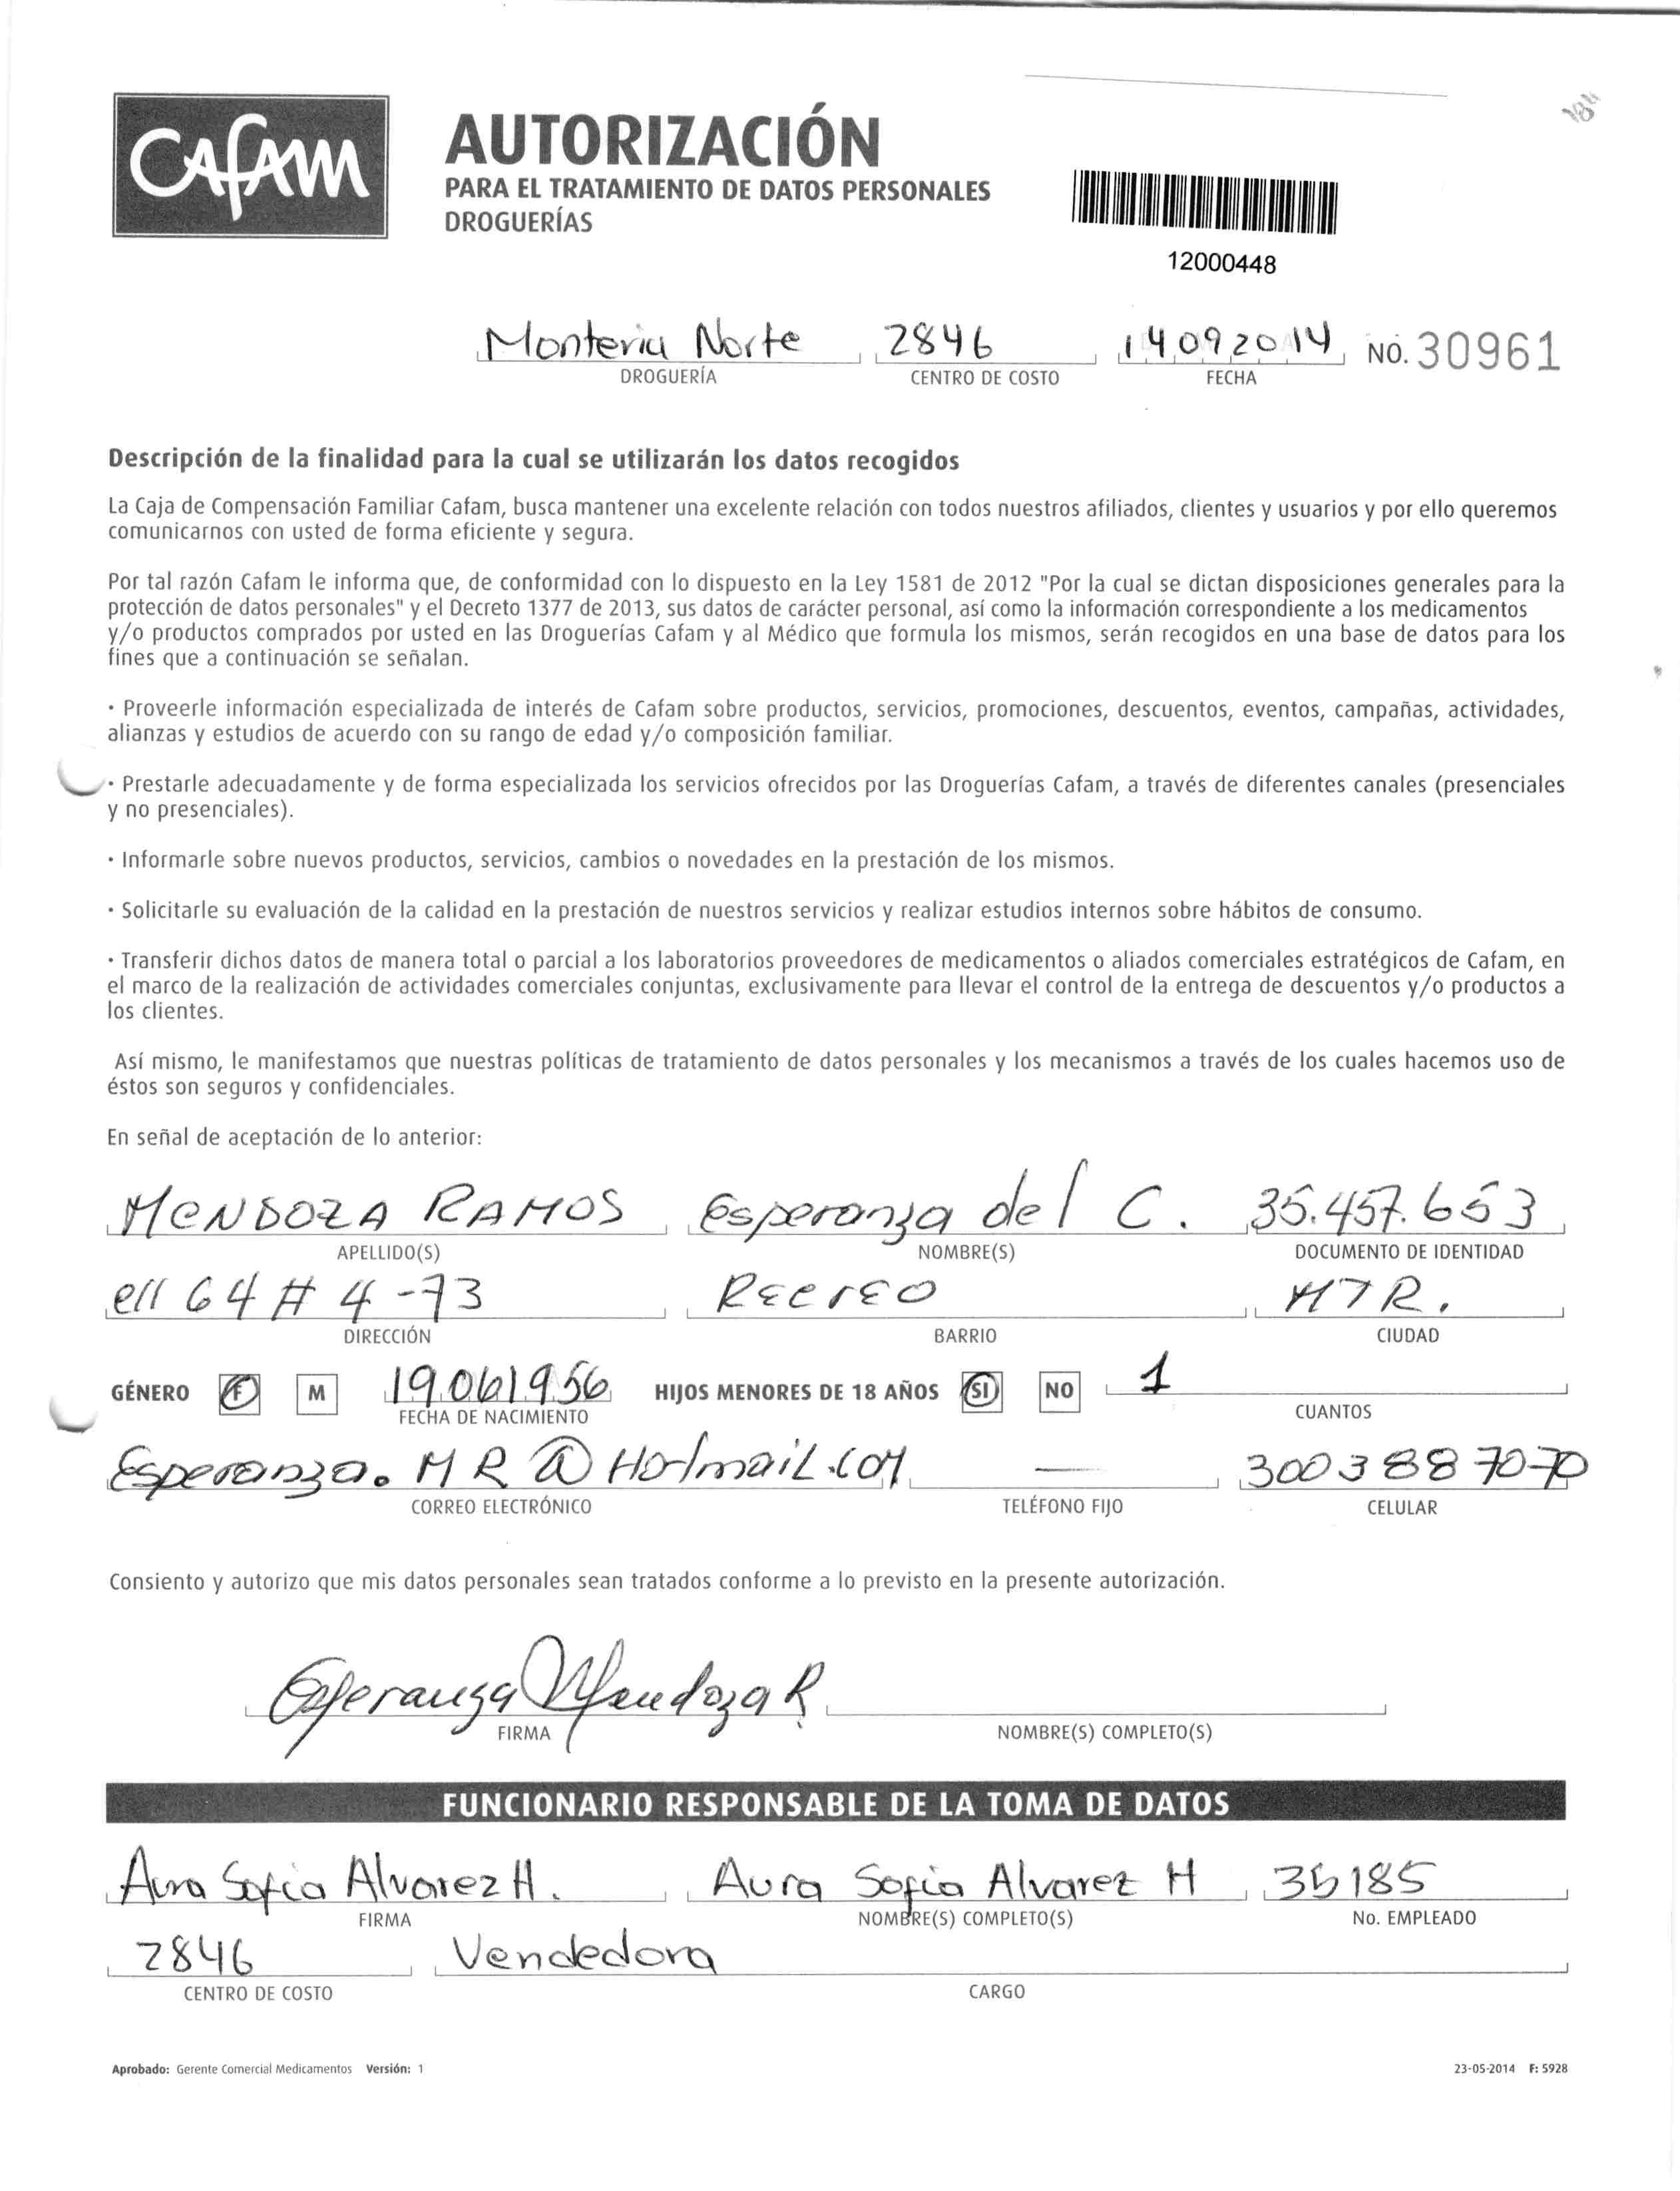 CAFAM
AUTORIZACIÓN
PARA EL TRATAMIENTO DE DATOS PERSONALES
DROGUERÍAS
12000448
Monteria Norte 2846 14092014 NO. 30961
DROGUERÍA CENTRO DE COSTO FECHA
Descripción de la finalidad para la cual se utilizarán los datos recogidos
La Caja de Compensación Familiar Cafam, busca mantener una excelente relación con todos nuestros afiliados, clientes y usuarios y por ello queremos
comunicarnos con usted de forma eficiente y segura.
Por tal razón Cafam le informa que, de conformidad con lo dispuesto en la Ley 1581 de 2012 "Por la cual se dictan disposiciones generales para la
protección de datos personales" y el Decreto 1377 de 2013, sus datos de carácter personal, así como la información correspondiente a los medicamentos
y/o productos comprados por usted en las Droguerías Cafam y al Médico que formula los mismos, serán recogidos en una base de datos para los
fines que a continuación se señalan.
· Proveerle información especializada de interés de Cafam sobre productos, servicios, promociones, descuentos, eventos, campañas, actividades,
alianzas y estudios de acuerdo con su rango de edad y/o composición familiar.
· Prestarle adecuadamente y de forma especializada los servicios ofrecidos por las Droguerías Cafam, a través de diferentes canales (presenciales
y no presenciales).
· Informarle sobre nuevos productos, servicios, cambios o novedades en la prestación de los mismos.
· Solicitarle su evaluación de la calidad en la prestación de nuestros servicios y realizar estudios internos sobre hábitos de consumo.
· Transferir dichos datos de manera total o parcial a los laboratorios proveedores de medicamentos o aliados comerciales estratégicos de Cafam, en
el marco de la realización de actividades comerciales conjuntas, exclusivamente para llevar el control de la entrega de descuentos y/o productos a
los clientes.
Así mismo, le manifestamos que nuestras políticas de tratamiento de datos personales y los mecanismos a través de los cuales hacemos uso de
éstos son seguros y confidenciales.
En señal de aceptación de lo anterior:
MENDOZA RAMOS Esperanza del C. 35.457.653
APELLIDO(S) NOMBRE(S) DOCUMENTO DE IDENTIDAD
cll 64 # 4-73 Recreo MTR.
DIRECCIÓN BARRIO CIUDAD
GÉNERO F M 19061956 HIJOS MENORES DE 18 AÑOS SI NO 1
FECHA DE NACIMIENTO CUANTOS
Esperanza.MR@Hotmail.com — 3003887070
CORREO ELECTRÓNICO TELÉFONO FIJO CELULAR
Consiento y autorizo que mis datos personales sean tratados conforme a lo previsto en la presente autorización.
Esperanza Mendoza R
FIRMA NOMBRE(S) COMPLETO(S)
FUNCIONARIO RESPONSABLE DE LA TOMA DE DATOS
Aura Sofia Alvarez H. Aura Sofia Alvarez H 35185
FIRMA NOMBRE(S) COMPLETO(S) No. EMPLEADO
2846 Vendedora
CENTRO DE COSTO CARGO
Aprobado: Gerente Comercial Medicamentos Versión: 1 23-05-2014 F: 5928